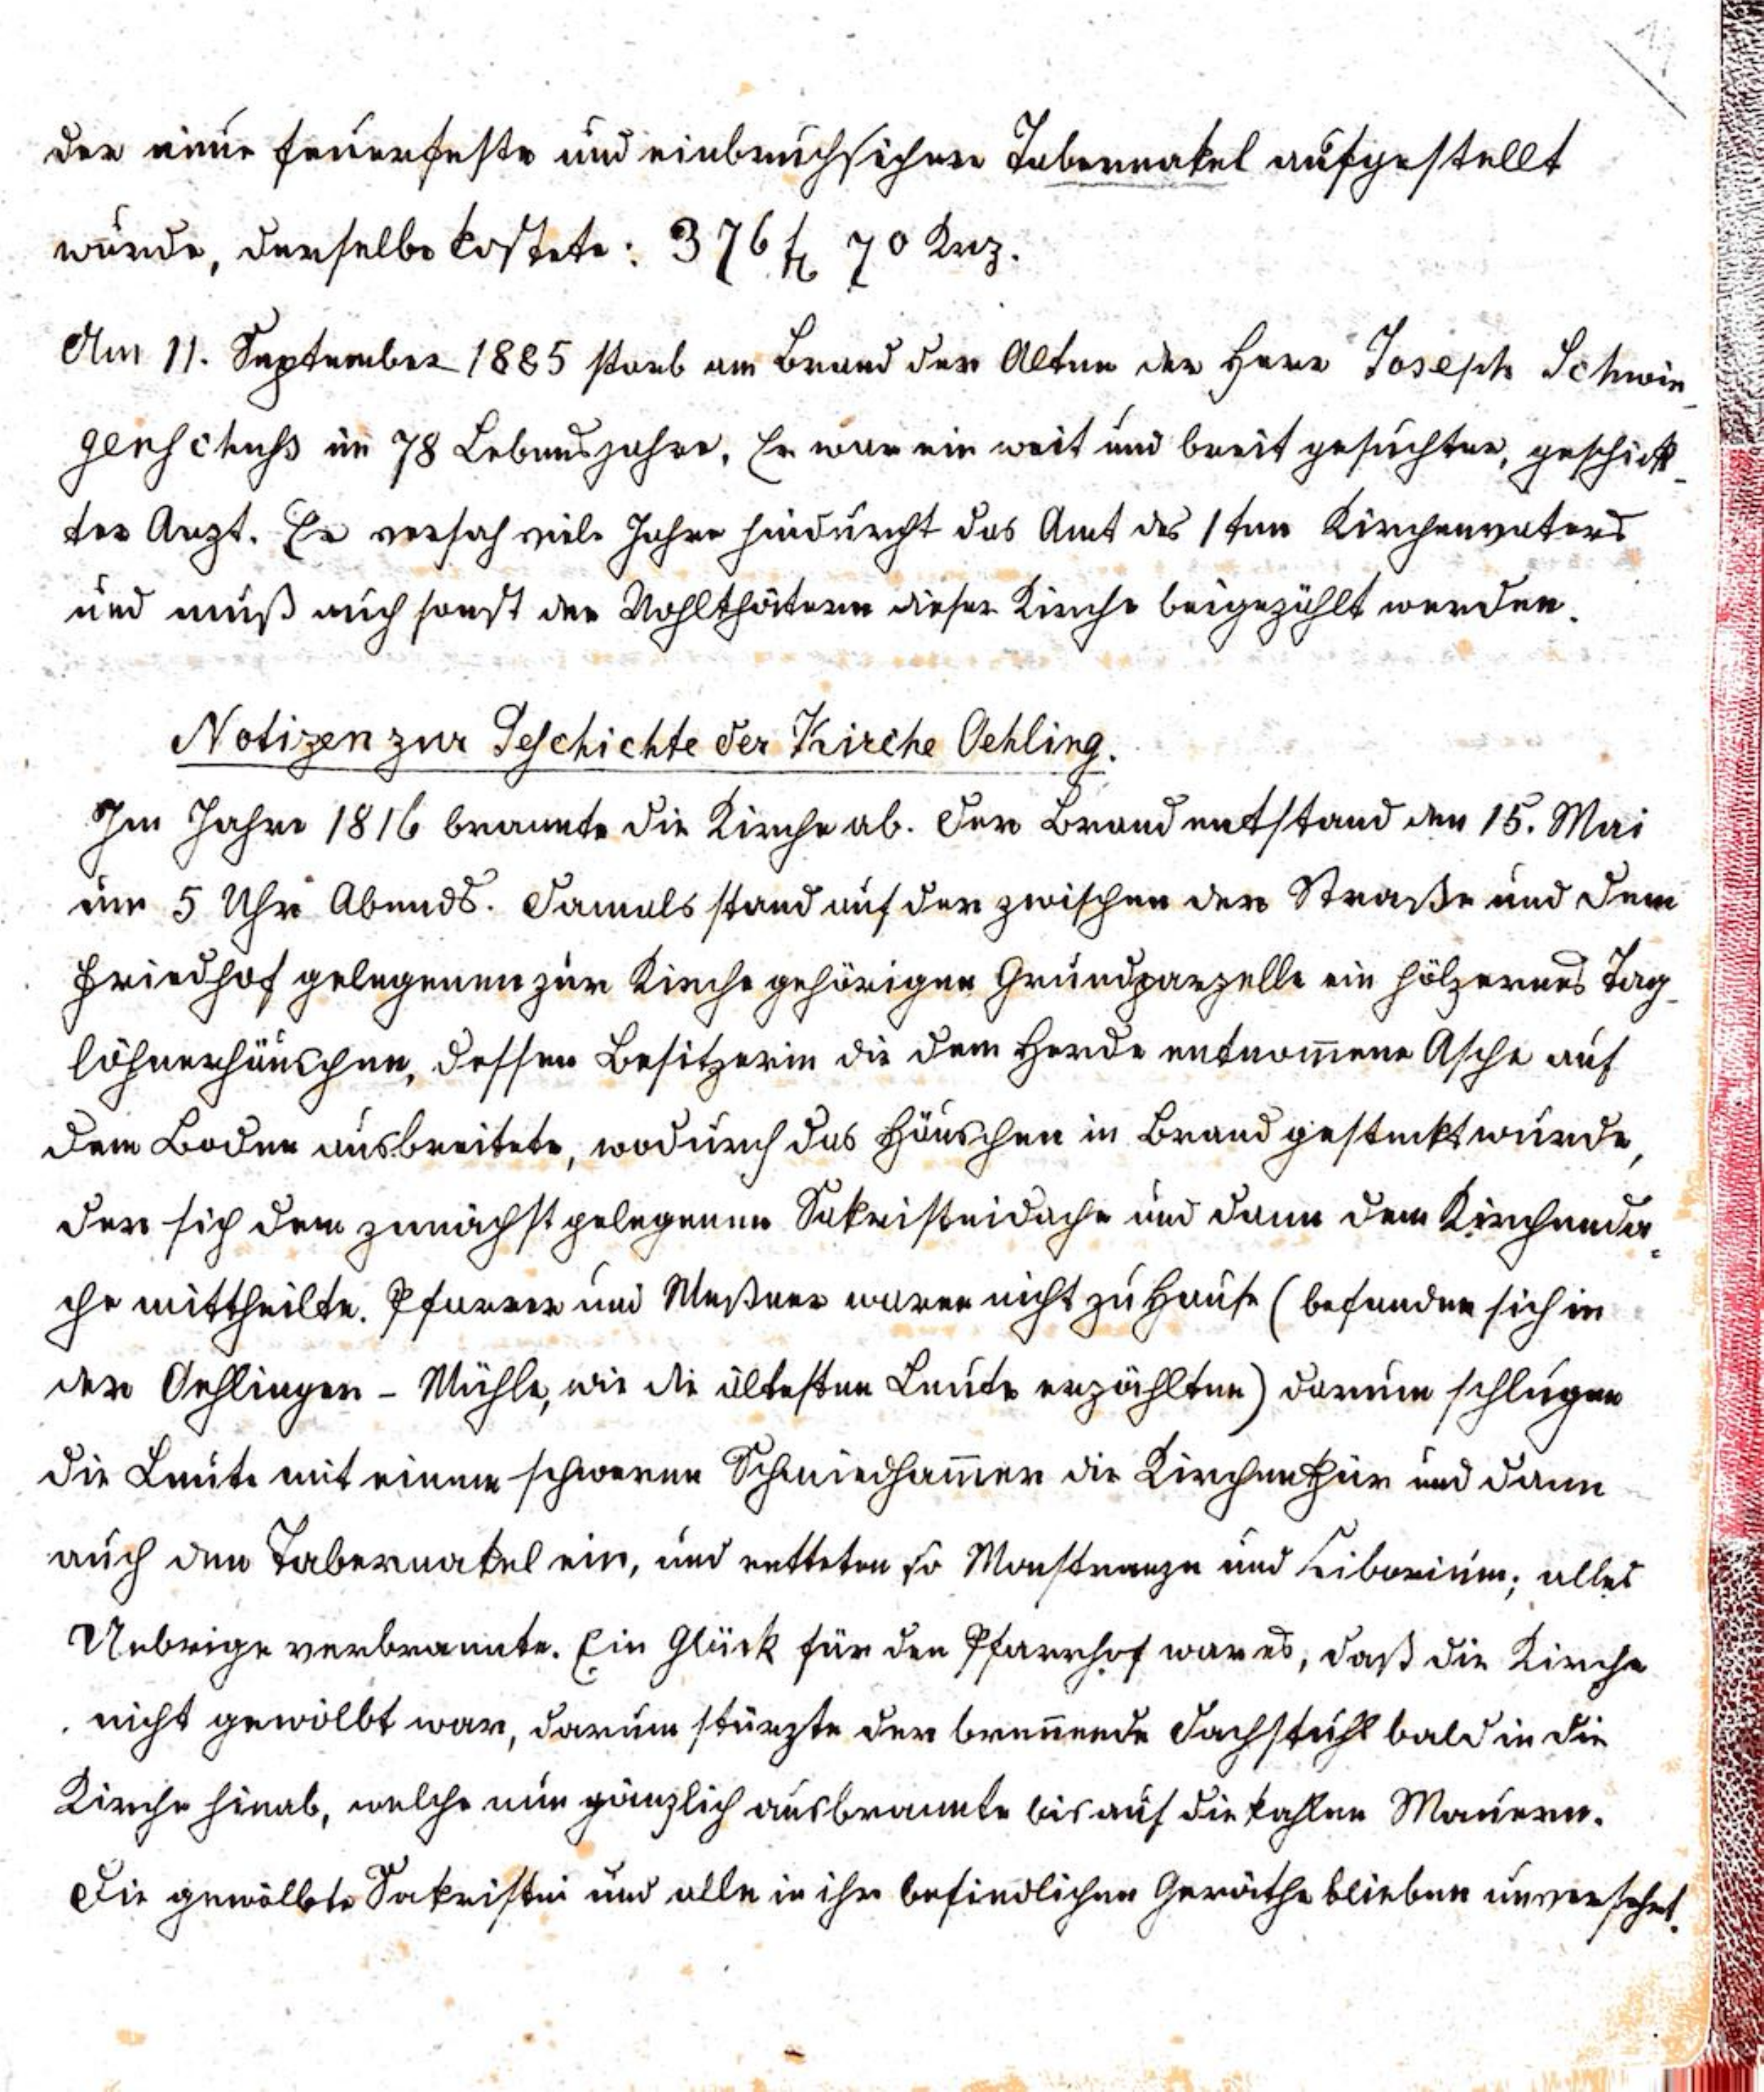 der neue feuerfeste und einbruchsichere Tabernakel aufgestellt
wurde, derselbe kostete: 376 fl 70 Krz.
Am 11. September 1885 starb am Brand der Alten der Herr Joseph Schwin-
genschuhs im 78 Lebensjahre. Er war ein weit und breit gesuchter, geschick-
ter Arzt. Er versah viele Jahre hindurcht das Amt des 1ten Kirchenvaters
und muß auch sonst den Wohlthätern dieser Kirche beigezählt werden.
Notizen zur Geschichte der Kirche Oehling.
Im Jahre 1816 brannte die Kirche ab. Der Brand entstand den 15. Mai
um 5 Uhr Abends. Damals stand auf der zwischen der Straße und dem
Friedhof gelegenen zur Kirche gehörigen Grundparzelle ein hölzernes Tag-
löhnerhäuschen, dessen Besitzerin die dem Herde entnom̅ene Asche auf
dem Boden ausbreitete, wodurch das Häuschen in Brand gesteckt wurde,
der sich dem zunächst gelegenen Sakristeidache und dann dem Kirchenda-
che mittheilte. Pfarrer und Meßner waren nicht zu Hause (befanden sich in
der Oehlinger - Mühle, wie die ältesten Leute erzählten) darum schlugen
die Leute mit einem schweren Schmiedham̅er die Kirchenthür und dann
auch den Tabernakel ein, und retteten so Monstranze und Ciborium; alles
Uebrige verbrannte. Ein Glück für den Pfarrhof war es, daß die Kirche
nicht gewölbt war, darum stürzte der bren̅ende Dachstuhl bald in die
Kirche hinab, welche nun gänzlich ausbrannte bis auf die kahlen Mauern.
Die gewölbte Sakristei und alle in ihr befindlichen Geräthe blieben unversehrt.